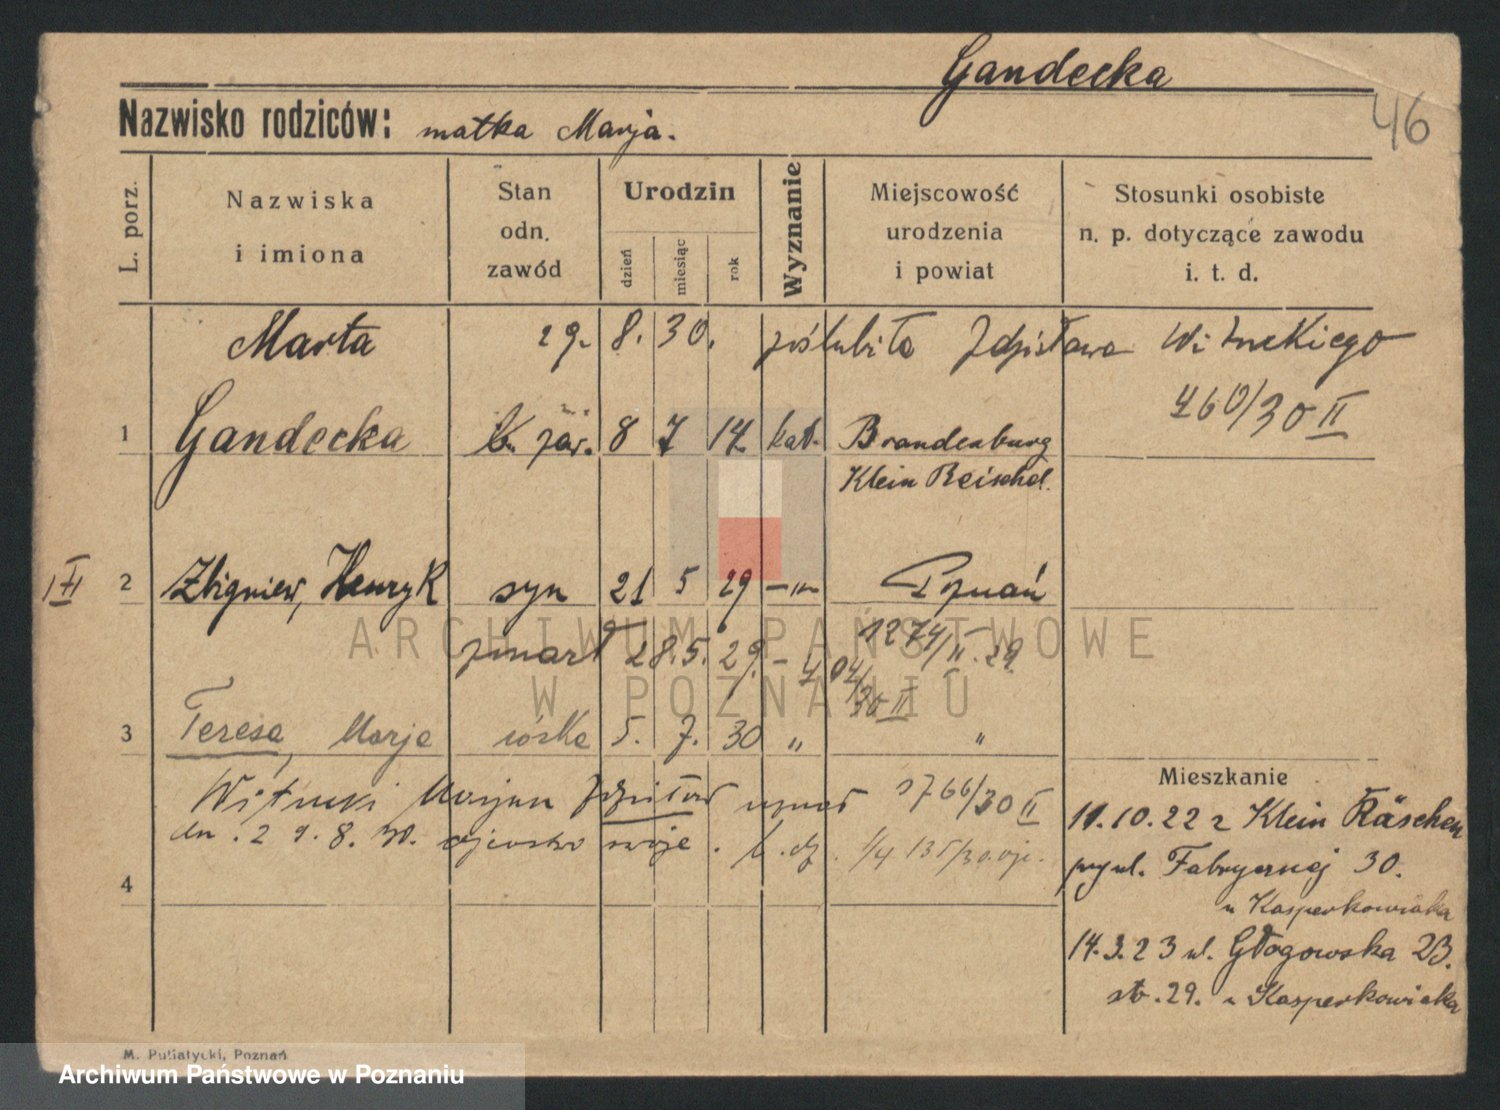 Gandecka
46
Nazwisko rodziców: matka Marja.
L. porz.
Nazwiska
i imiona
Stan
odn.
zawód
Urodzin
dzień
miesiąc
rok
Wyznanie
Miejscowość
urodzenia
i powiat
Stosunki osobiste
n. p. dotyczące zawodu
i. t. d.
Marta 29. 8. 30. poślubiła Zdzisława Wituckiego
460/30 II
1 Gandecka 8 7 14. kat. Brandenburg
Klein Reischel.
2 Zbigniew, Henryk syn 21 5 29 —"— Poznań
zmarł 28.5.29. 1274/II. 29.
ARCHIWUM PAŃSTWOWE
W POZNANIU
3 Teresa, Marja córka 5. 7. 30 " "
Witucki Marjan Zdzisław uznał 1766/30 II
dn. 29. 8. 30. ojcostwo swoje.
4
Mieszkanie
11.10.22 z Klein Räschen
przy ul. Fabrycznej 30.
u Kasperkowiaka
14.3.23 ul. Głogowska 23.
str. 29. u Kasperkowiaka
M. Putiatycki, Poznań
Archiwum Państwowe w Poznaniu